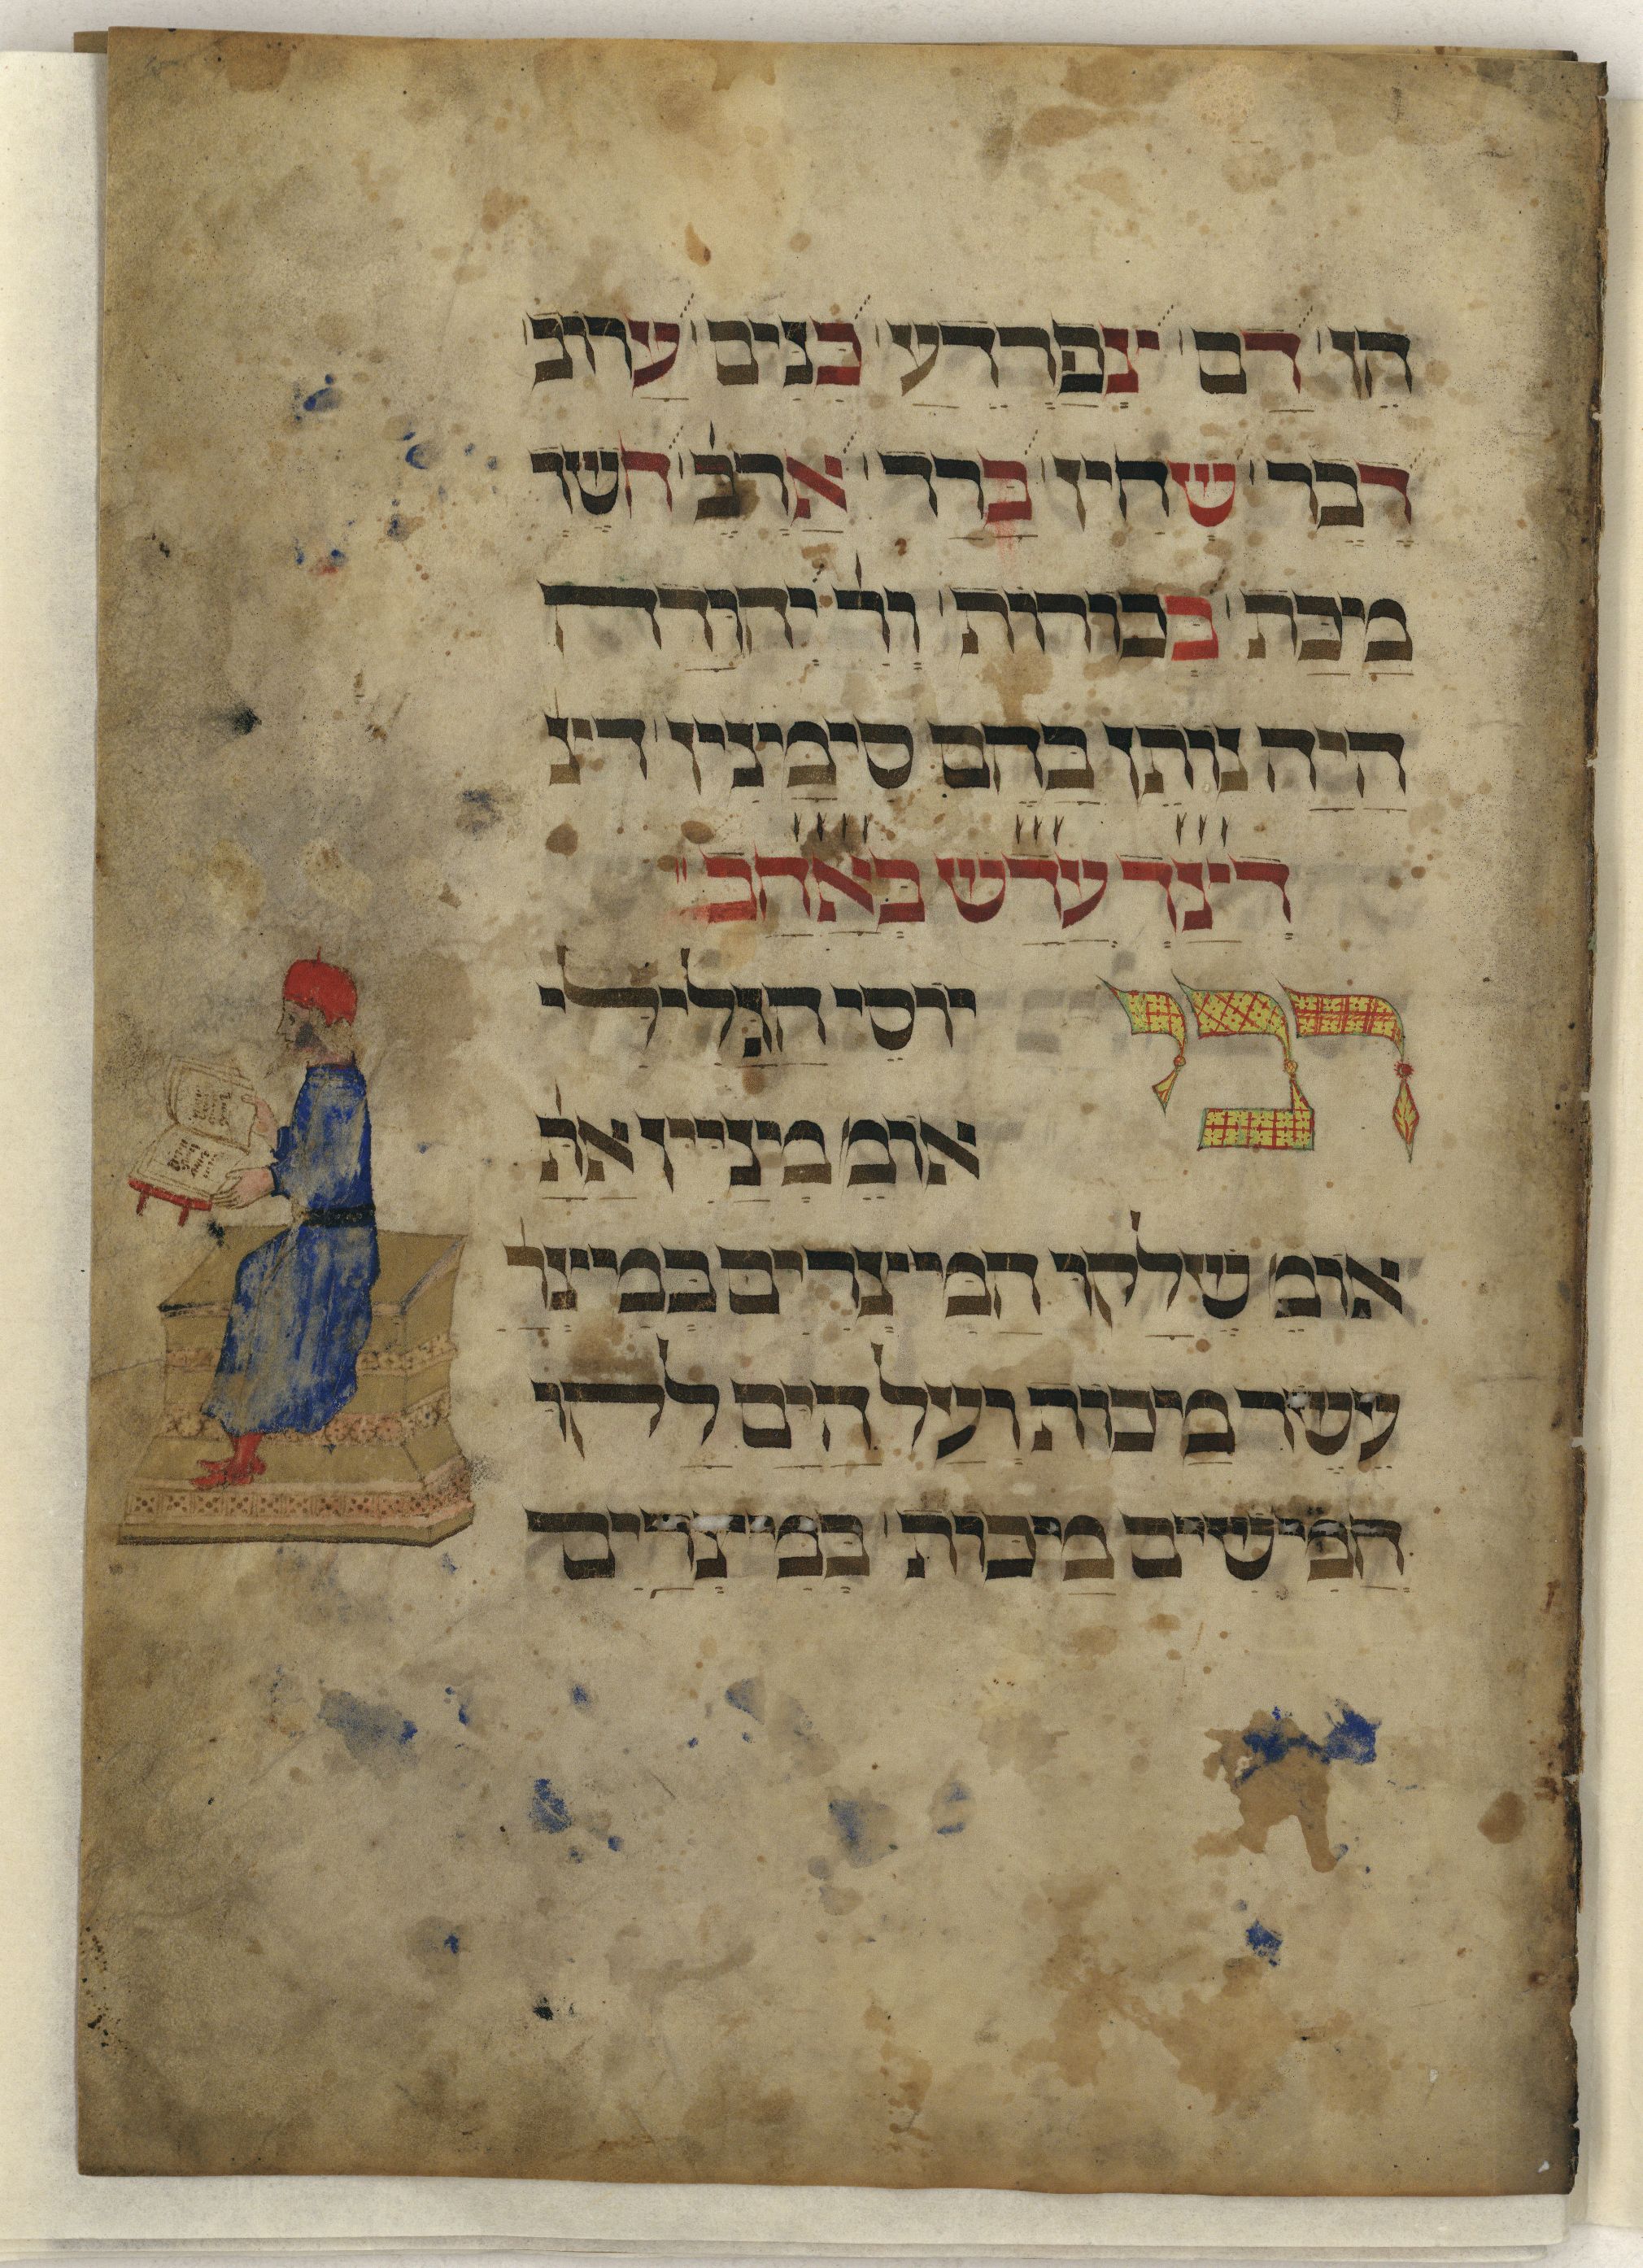 הן דם צפרדע כנים ערוב
דבר שחין ברד ארב׳ חשך
מיכת בכורות ור׳ יהודה
היה נותן בהם סימינין דיצ
דיצך עדש באחב
רבי יוסי הגלילי
אומ׳ מיניין את׳
אומ׳ שלקו המיצרים במיצר
עשר מיכות ועל הים לקו
חמישים מיכות במיצרים